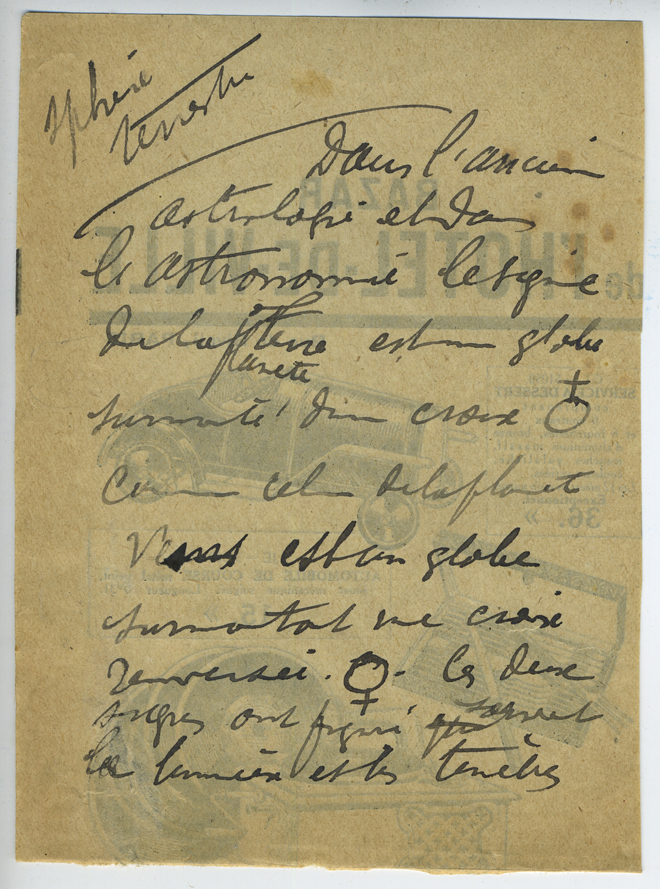 sphère
terrestre
Dans l'ancienne
astrologie et dans
l'astronomie le signe
de la terre est un globe
planète
surmonté d'une croix ♁
comme celui de la planète
Venus est un globe
surmontant une croix
renversée. ♀. Ces deux
signes ont figuré souvent
la lumière et les tenèbres
BAZAR
de l'HOTEL DE VILLE
SERVICE A DESSERT
36. »
AUTOMOBILE DE COURSE